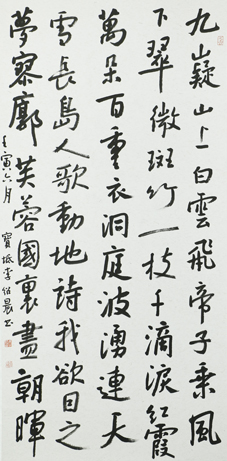 九嶷山上白雲飛帝子乘風
下翠微斑竹一枝千滴淚紅霞
萬朵百重衣洞庭波湧連天
雪長島人歌動地詩我欲因之
夢寥廓芙蓉國裏盡朝暉
壬寅六月 寶坻李晨书